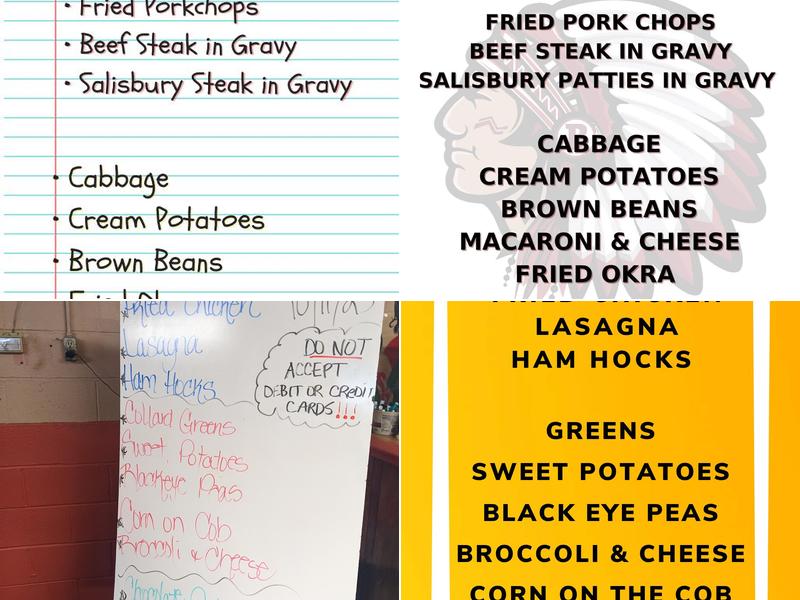 • Fried Porkchops
• Beef Steak in Gravy
• Salisbury Steak in Gravy
• Cabbage
• Cream Potatoes
• Brown Beans
FRIED PORK CHOPS
BEEF STEAK IN GRAVY
SALISBURY PATTIES IN GRAVY
CABBAGE
CREAM POTATOES
BROWN BEANS
MACARONI & CHEESE
FRIED OKRA
Fried Chicken
Lasagna
Ham Hocks
DO NOT
ACCEPT
DEBIT OR CREDIT
CARDS!!!
Collard Greens
Sweet Potatoes
Blackeye Peas
Corn on Cob
Broccoli & Cheese
LASAGNA
HAM HOCKS
GREENS
SWEET POTATOES
BLACK EYE PEAS
BROCCOLI & CHEESE
CORN ON THE COB